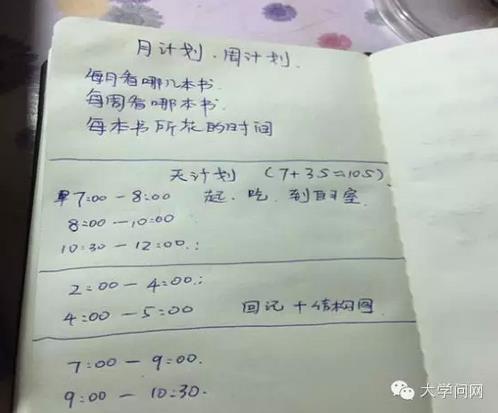 月计划.周计划.
每月看哪几本书.
每周看哪本书.
每本书所花的时间
天计划 (7+35=105)
早7:00-8:00 起.吃.到自习室.
8:00-10:00
10:30-12:00.:
2:00-4:00.:
4:00-5:00 回记+结构图
7:00-9:00.
9:00-10:30.
大学问网